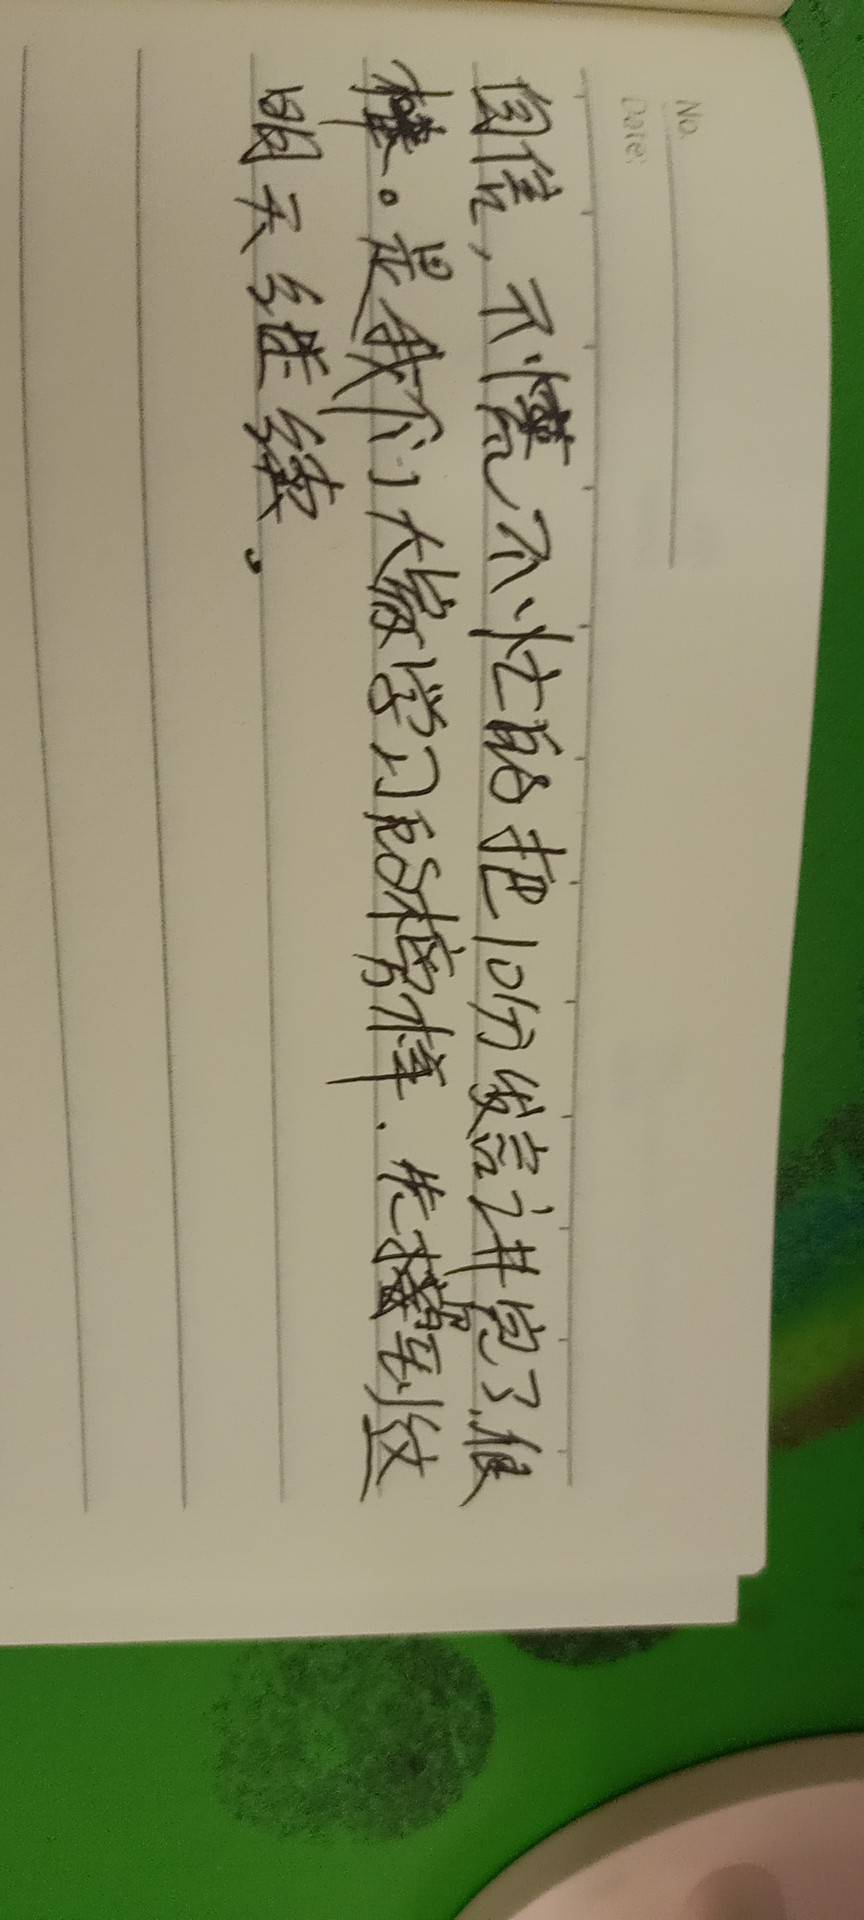 No.
Date:
自信，不慌不忙的把10分发言讲完了，很
棒。是我们大家学习的榜样．先写到这
明天继续．